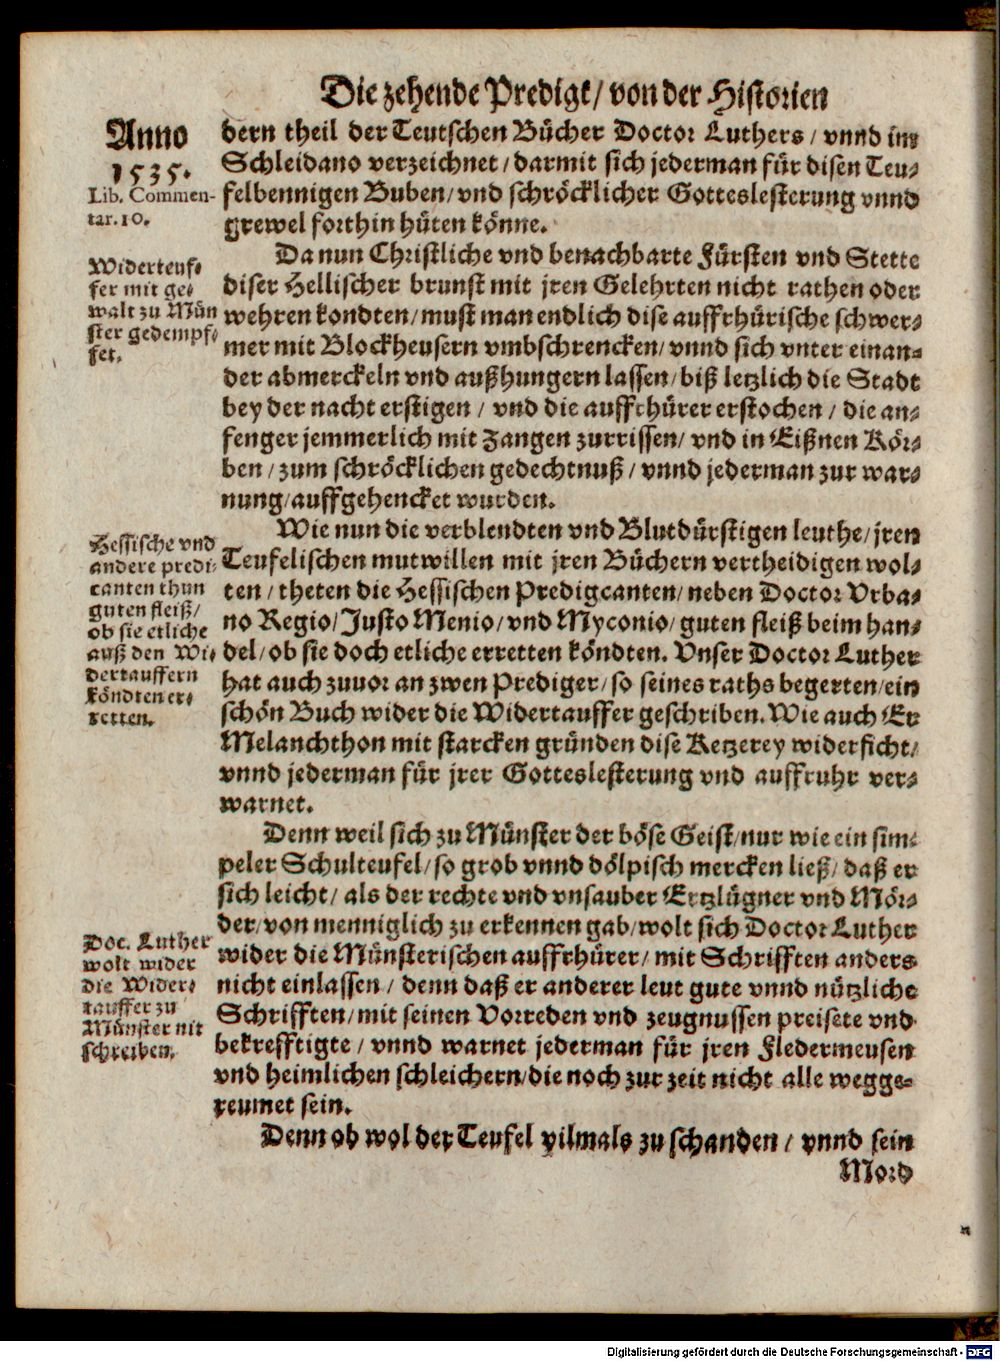 Die zehende Predigt/ von der Historien
Anno
1535.
Lib. Commen-
tar. 10.
dern theil der Teutschen Bücher Doctor Luthers/ vnnd im
Schleidano verzeichnet/ darmit sich jederman für disen Teu-
felbennigen Buben/ vnd schröcklicher Gotteslesterung vnnd
grewel forthin hüten könne.
Widerteuf-
fer mit ge-
walt zu Mün
ster gedempf-
fet.
Da nun Christliche vnd benachbarte Fürsten vnd Stette
diser Hellischer brunst mit jren Gelehrten nicht rathen oder
wehren kondten/ must man endlich dise auffrhürische schwer-
mer mit Blockheusern vmbschrencken/ vnnd sich vnter einan-
der abmerckeln vnd außhungern lassen/ biß letzlich die Stadt
bey der nacht erstigen/ vnd die auffrhürer erstochen/ die an-
fenger jemmerlich mit Zangen zurrissen/ vnd in Eißnen Kör-
ben/ zum schröcklichen gedechtnuß/ vnnd jederman zur war-
nung/ auffgehencket wurden.
Hessische vnd
andere predi-
canten thun
guten fleiß/
ob sie etliche
auß den Wi-
dertauffern
köndten er-
retten.
Wie nun die verblendten vnd Blutdürstigen leuthe/ jren
Teufelischen mutwillen mit jren Büchern vertheidigen wol-
ten/ theten die Hessischen Predigcanten/ neben Doctor Vrba-
no Regio/ Justo Menio/ vnd Myconio/ guten fleiß beim han-
del/ ob sie doch etliche erretten köndten. Vnser Doctor Luther
hat auch zuuor an zwen Prediger/ so seines raths begerten/ ein
schön Buch wider die Widertauffer geschriben. Wie auch Er
Melanchthon mit starcken gründen dise Ketzerey widerficht/
vnnd jederman für jrer Gotteslesterung vnd auffruhr ver-
warnet.
Denn weil sich zu Münster der böse Geist/ nur wie ein sim-
peler Schulteufel/ so grob vnnd dölpisch mercken ließ/ daß er
sich leicht/ als der rechte vnd vnsauber Ertzlügner vnd Mör-
der/ von menniglich zu erkennen gab/ wolt sich Doctor Luther
wider die Münsterischen auffrhürer/ mit Schrifften anders
nicht einlassen/ denn daß er anderer leut gute vnnd nützliche
Schrifften/ mit seinen Vorreden vnd zeugnussen preisete vnd
bekrefftigte/ vnnd warnet jederman für jren Fledermeusen
vnd heimlichen schleichern/ die noch zur zeit nicht alle wegge-
reumet sein.
Doc. Luther
wolt wider
die Wider-
tauffer zu
Münster nit
schreiben.
Denn ob wol der Teufel vilmals zu schanden/ vnnd sein
Mord
Digitalisierung gefördert durch die Deutsche Forschungsgemeinschaft - DFG